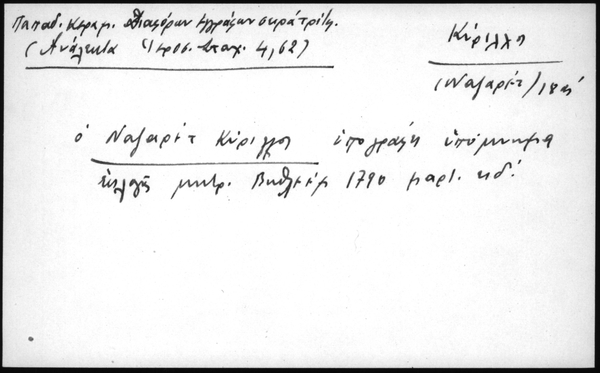 Παπαδ. Κεραμ. Διαφόρων ἐγγράφων σειρὰ τρίτη.
(Ἀνάλεκτα Ἱεροσ. Σταχ. 4, 62)
Κύριλλος
(Ναζαρέτ) 18
ὁ Ναζαρὲτ Κύριλλος ὑπογράφει ὑπόμνημα
ἐκλογῆς μητρ. Βηθλεὲμ 1790 μαρτ. κδ΄.